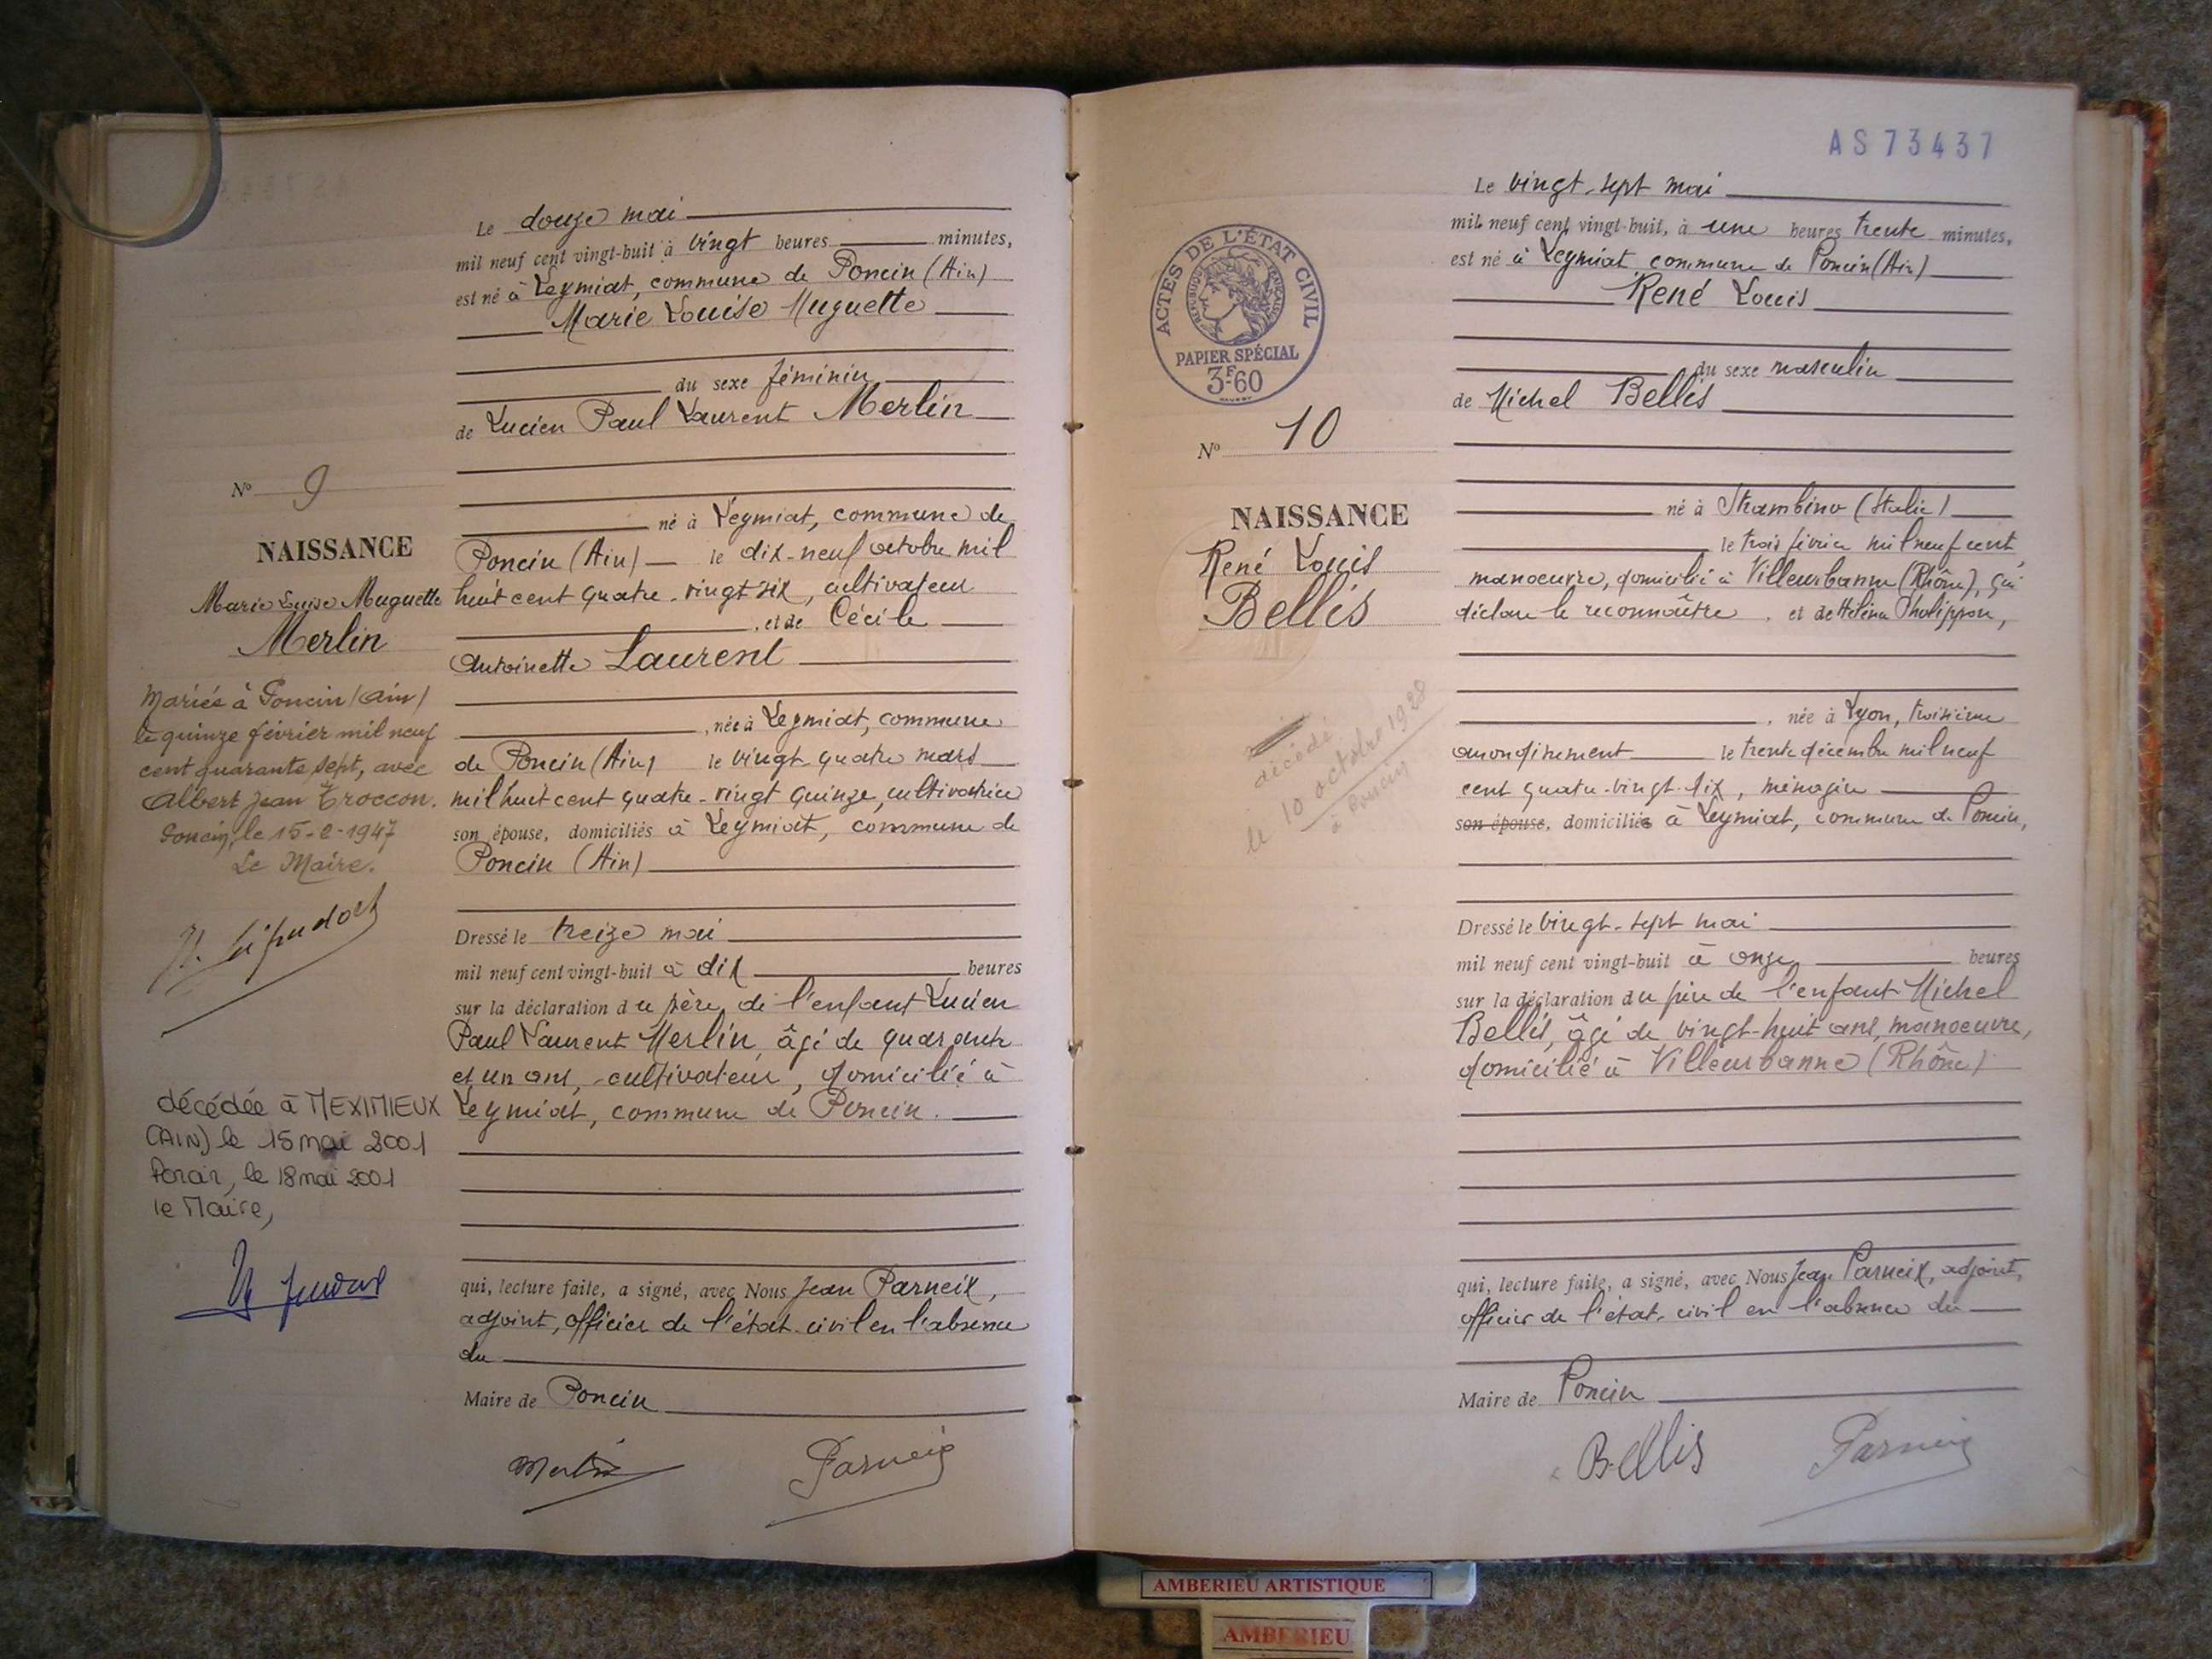 Le douze mai
mil neuf cent vingt-huit à vingt heures minutes,
est né à Leymiat, commune de Poncin (Ain)
Marie Louise Huguette
du sexe féminin
de Lucien Paul Laurent Merlin
né à Leymiat, commune de
Poncin (Ain) le dix-neuf octobre mil
huit cent quatre-vingt six, cultivateur
, et de Cécile
Antoinette Laurent
, née à Leymiat, commune
de Poncin (Ain) le vingt quatre mars
mil huit cent quatre-vingt quinze, cultivatrice
son épouse, domiciliés à Leymiat, commune de
Poncin (Ain)
Dressé le treize mai
mil neuf cent vingt-huit à dix heures
sur la déclaration du père de l'enfant Lucien
Paul Laurent Merlin, âgé de quarante
et un ans, cultivateur, domicilié à
Leymiat, commune de Poncin.
qui, lecture faite, a signé, avec Nous Jean Parneix,
adjoint, officier de l'état-civil en l'absence
du
Maire de Poncin
Merlin Parneix
N° 9
NAISSANCE
Marie Louise Huguette
Merlin
Mariés à Poncin (Ain)
le quinze février mil neuf
cent quarante sept, avec
Albert Jean Troccon.
Poncin, le 15-2-1947
Le Maire.
décédée à MEXIMIEUX
(AIN) le 15 mai 2001
Poncin, le 18 mai 2001
le Maire,
AS73437
Le vingt-sept mai
mil neuf cent vingt-huit, à une heures trente minutes,
est né à Leymiat commune de Poncin (Ain)
René Louis
du sexe masculin
de Michel Bellis
né à Strambino (Italie)
le trois février mil neuf cent,
manoeuvre, domicilié à Villeurbanne (Rhône), qui
déclare le reconnaître , et de Hélène Philippon,
, née à Lyon, troisième
arrondissement le trente décembre mil neuf
cent quatre-vingt-dix, ménagère
son épouse, domiciliée à Leymiat, commune de Poncin,
Dressé le vingt-sept mai
mil neuf cent vingt-huit à onze heures
sur la déclaration du père de l'enfant Michel
Bellis, âgé de vingt-huit ans, manoeuvre,
domicilié à Villeurbanne (Rhône)
qui, lecture faite, a signé, avec Nous Jean Parneix, adjoint,
officier de l'état-civil en l'absence du
Maire de Poncin
Bellis Parneix
ACTES DE L'ÉTAT CIVIL
RÉPUBLIQUE FRANÇAISE
PAPIER SPÉCIAL
3F60
N° 10
NAISSANCE
René Louis
Bellis
décédé
le 10 octobre 1928
à Poncin
AMBERIEU ARTISTIQUE
AMBERIEU